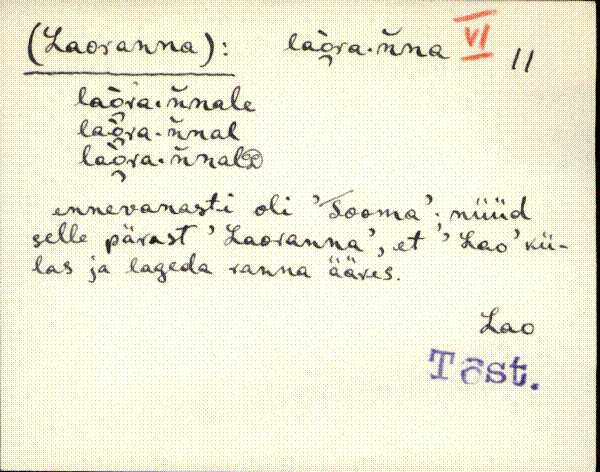 (Laoranna): laò̭ra·n̆na VI 11
laò̭ra·n̆nale
laò̭ra·n̆nal
laò̭ra·n̆nal
ennevanasti oli 'Sooma'; nüüd
selle pärast 'Laoranna', et 'Lao' kü-
las ja lageda ranna ääres.
Lao
Tõst.